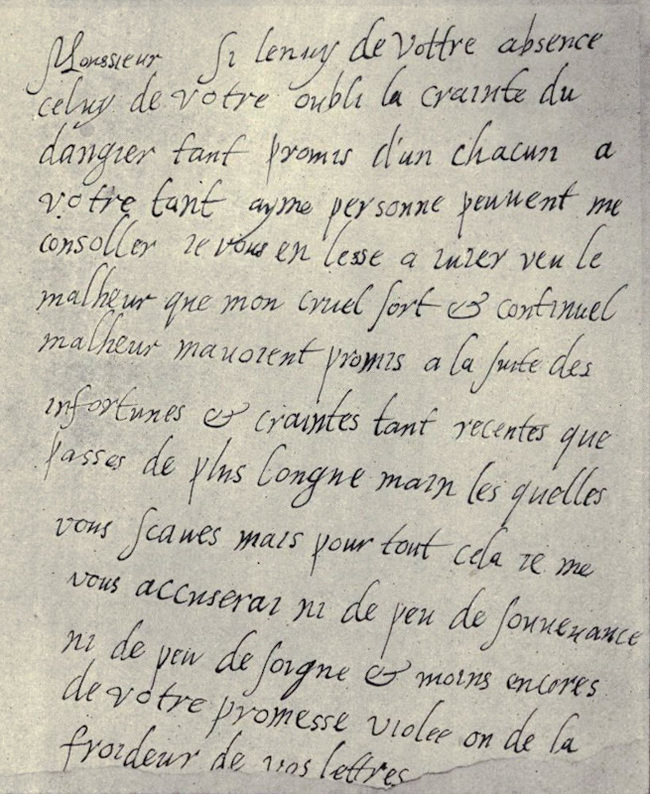 Monssieur Si lenuy de Vottre absence
celuy de votre oubli la crainte du
dangier tant promis d'un chacun a
votre tant ayme personne peuuent me
consoller ie vous en lesse a iuier veu le
malheur que mon cruel sort & continuel
malheur mauoient promis a la suite des
infortunes & craintes tant recentes que
passes de plus longne main les quelles
vous scaues mais pour tout cela ie me
vous accuserai ni de peu de souuenance
ni de peu de soigne & moins encores
de votre promesse violee on de la
froideur de vos lettres